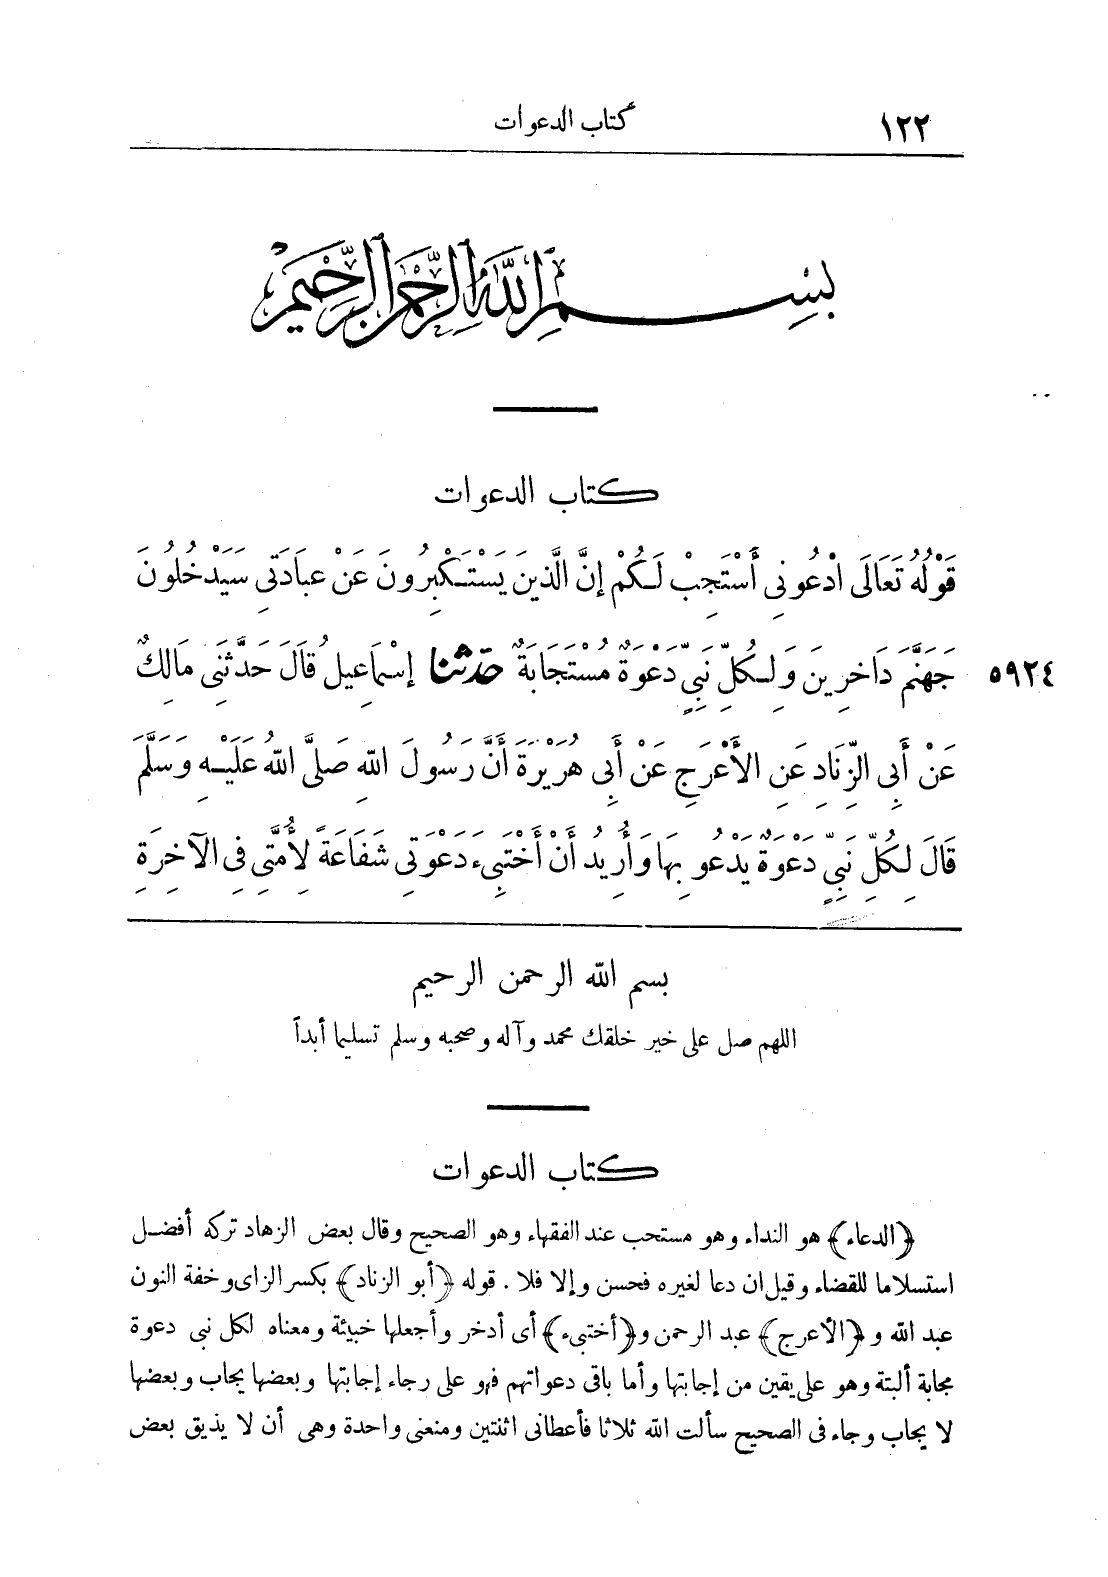 ١٢٢
كتاب الدعوات
بِسْمِ اللّٰهِ الرَّحْمٰنِ الرَّحِيْمِ
كتاب الدعوات
قَوْلُهُ تَعَالَى ادْعُونِى أَسْتَجِبْ لَكُمْ إِنَّ الَّذِينَ يَسْتَكْبِرُونَ عَنْ عِبَادَتِى سَيَدْخُلُونَ
جَهَنَّمَ دَاخِرِينَ وَلِكُلِّ نَبِيٍّ دَعْوَةٌ مُسْتَجَابَةٌ حدثنا إِسْمَاعِيلُ قَالَ حَدَّثَنِى مَالِكٌ ٥٩٢٤
عَنْ أَبِى الزِّنَادِ عَنِ الأَعْرَجِ عَنْ أَبِى هُرَيْرَةَ أَنَّ رَسُولَ اللهِ صَلَّى اللهُ عَلَيْهِ وَسَلَّمَ
قَالَ لِكُلِّ نَبِيٍّ دَعْوَةٌ يَدْعُو بِهَا وَأُرِيدُ أَنْ أَخْتَبِىءَ دَعْوَتِى شَفَاعَةً لِأُمَّتِى فِى الآخِرَةِ
بسم الله الرحمن الرحيم
اللهم صل على خير خلقك محمد وآله وصحبه وسلم تسليما أبداً
كتاب الدعوات
﴿الدعاء﴾ هو النداء وهو مستحب عند الفقهاء وهو الصحيح وقال بعض الزهاد تركه أفضل
استسلاما للقضاء وقيل ان دعا لغيره فحسن وإلا فلا . قوله ﴿أبو الزناد﴾ بكسر الزاى وخفة النون
عبد الله و﴿الأعرج﴾ عبد الرحمن و﴿أختبىء﴾ أى أدخر وأجعلها خبيئة ومعناه لكل نبي دعوة
مجابة ألبتة وهو على يقين من إجابتها وأما باقى دعواتهم فهو على رجاء إجابتها وبعضها يجاب وبعضها
لا يجاب وجاء فى الصحيح سألت الله ثلاثا فأعطانى اثنتين ومنعنى واحدة وهى أن لا يذيق بعض